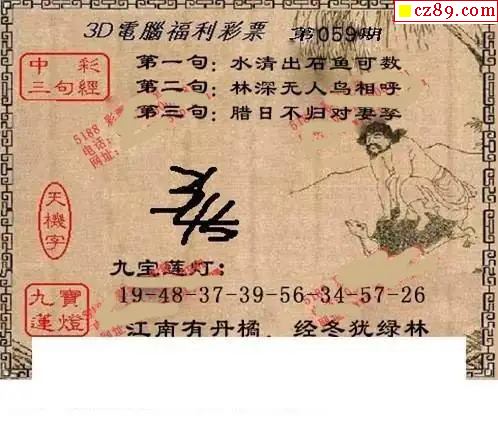 cz89.com
3D電腦福利彩票 第059期
中彩
三句經
第一句：水清出石鱼可数
第二句：林深无人鸟相呼
第三句：腊日不归对妻孥
5188
电话：
网址：
天機字
九宝莲灯：
19-48-37-39-56 34-57-26
九寶
蓮燈
江南有丹橘，经冬犹绿林